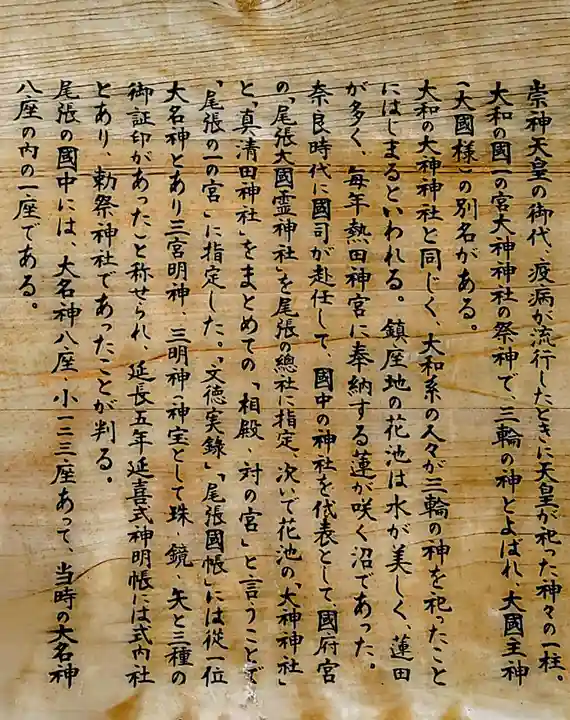 崇神天皇の御代、疫病が流行したときに天皇が祀った神々の一柱。
大和の國一の宮大神神社の祭神で、三輪の神とよばれ、大國主神
(大國様)の別名がある。
大和の大神神社と同じく、大和系の人々が三輪の神を祀ったこと
にはじまるといわれる。鎮座地の花池は水が美しく、蓮田
が多く、毎年熱田神宮に奉納する蓮が咲く沼であった。
奈良時代に國司が赴任して、國中の神社を代表として、國府宮
の「尾張大國霊神社」を尾張の總社に指定、次いで花池の、「大神神社」
と「真清田神社」をまとめての「相殿、対の宮」と言うことで
「尾張の一の宮」に指定した。「文徳実錄」「尾張國帳」には従一位
大名神とあり三宮明神、三明神(神宝として珠、鏡、矢と三種の
御証印があった)と称せられ、延長五年延喜式神明帳には式内社
とあり、勅祭神社であったことが判る。
尾張の國中には、大名神八座、小一二三座あって、当時の大名神
八座の内の一座である。